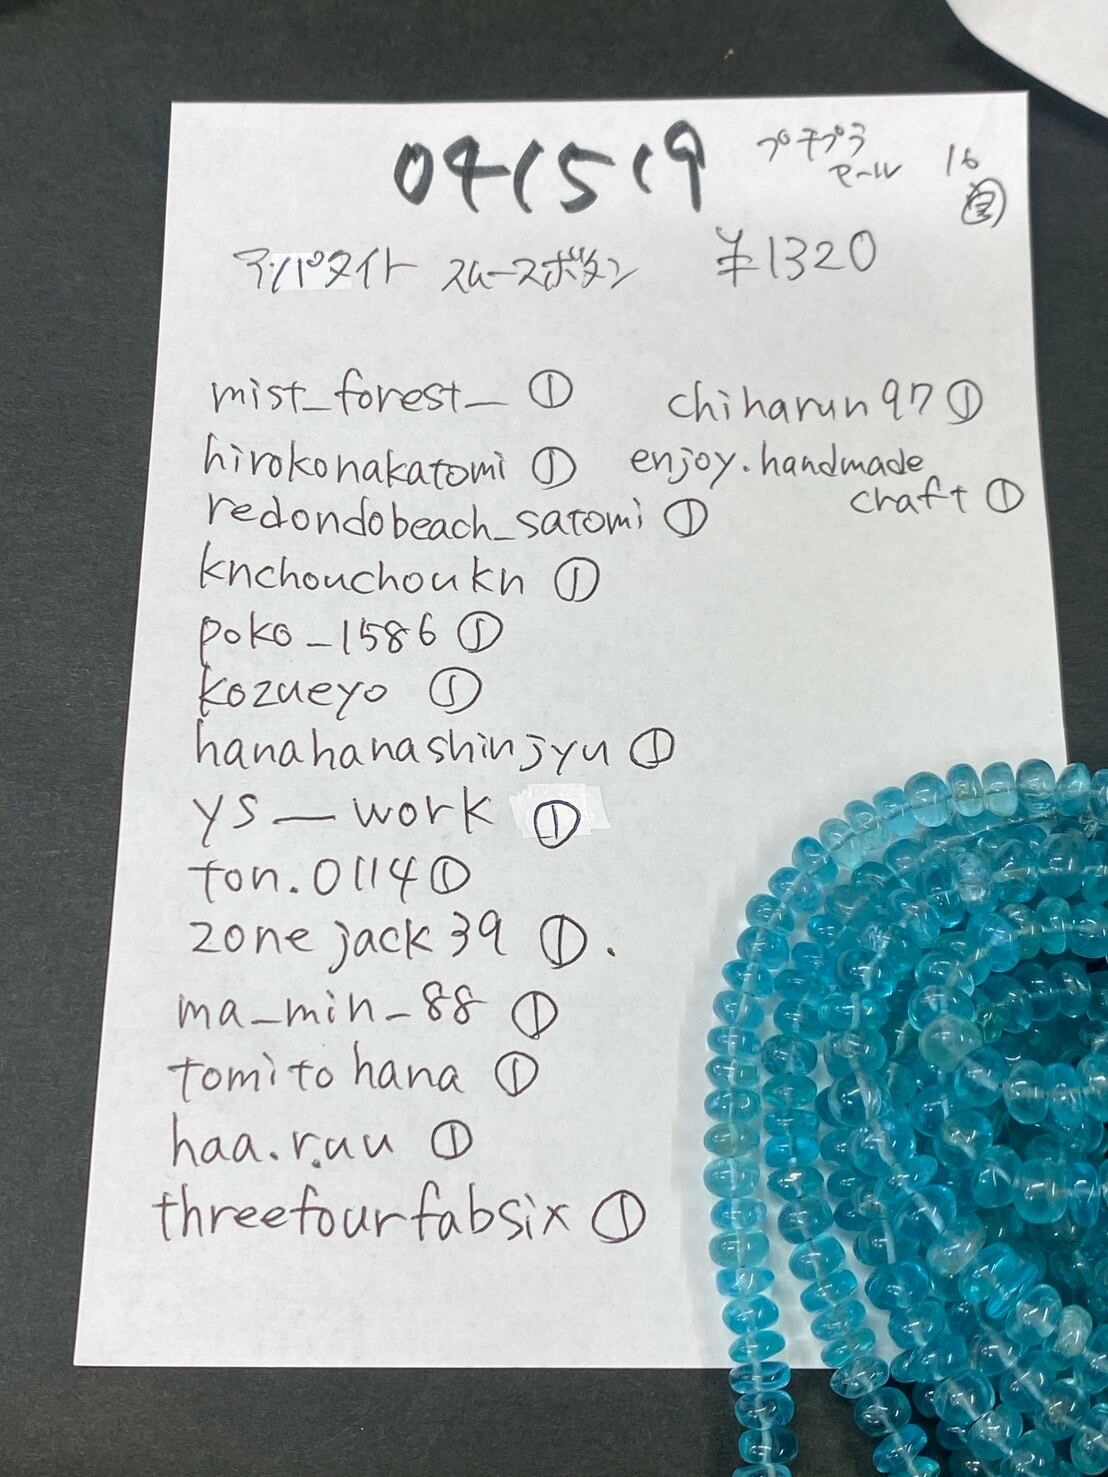 041519
プチプラ
セール
16
アパタイト スムースボタン ¥1320
mist_forest_ ①
hirokonakatomi ①
redondobeach_satomi ①
knchouchoukn ①
poko_1586 ①
kozueyo ①
hanahanashinjyu ①
ys__work ①
ton.0114 ①
zonejack39 ①.
ma_min_88 ①
tomitohana ①
haa.r.uu ①
threefourfabsix ①
chiharun97 ①
enjoy.handmade
craft ①